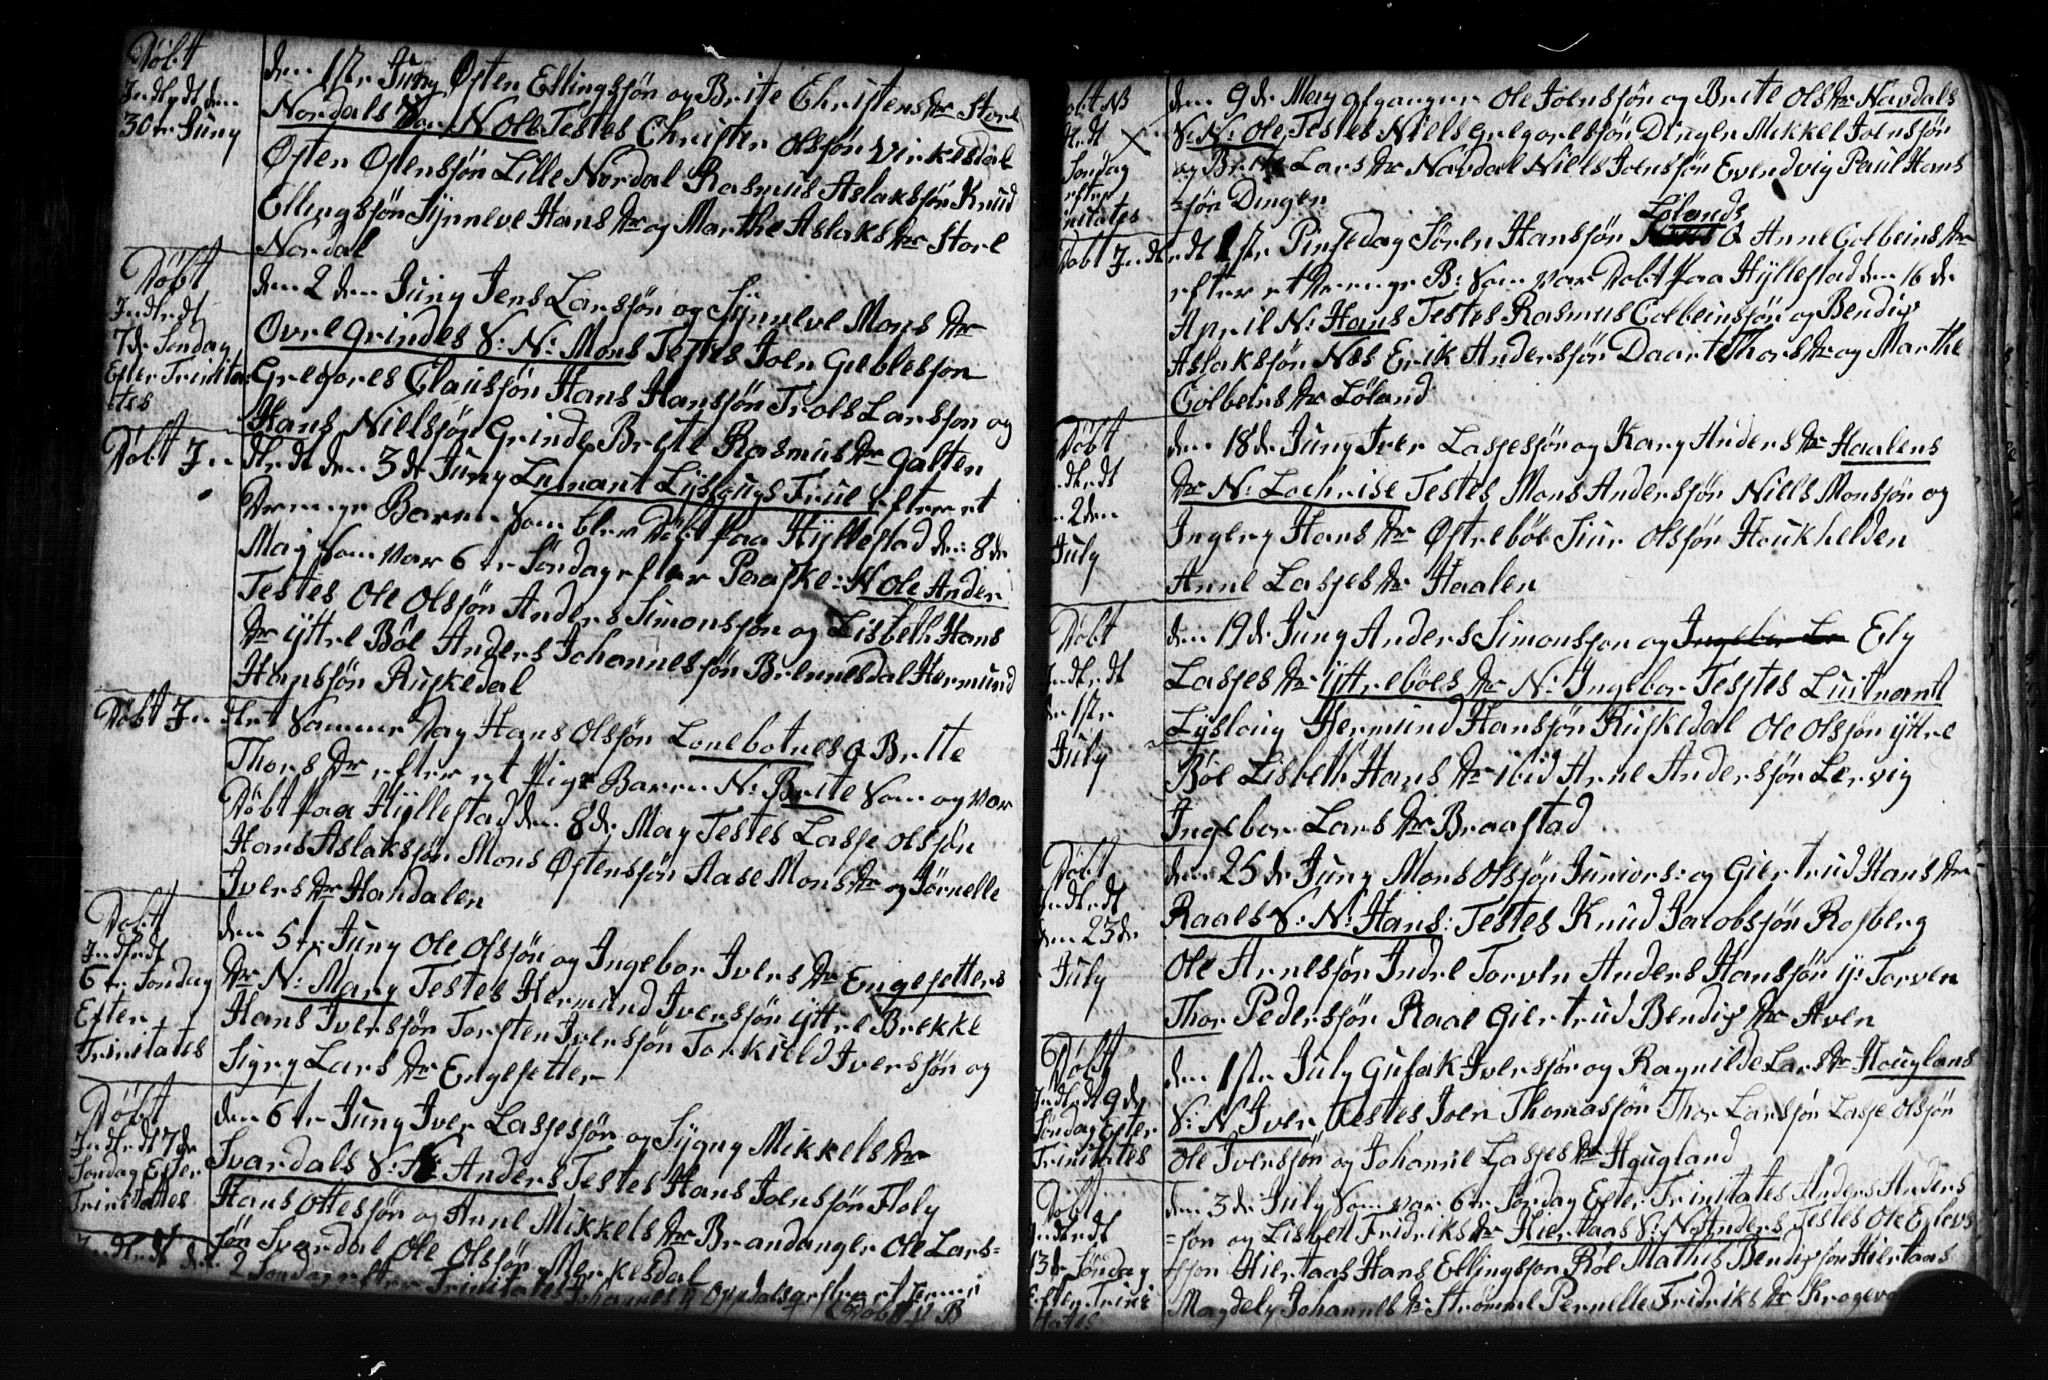 Döbt
Indledt den
30te Juny
den 1ste Juny Østen Ellingssön og Brite Christensdr Store
Nordals Sön N Ole Testes Christen Olssön Virkesdal
Østen Østenssön Lille Nordal Rasmus Aslakssön Knud
Ellingssön Synneve Hansdr og Marthe Aslaksdr Store
Nordal
Döbt
Indledt
7de Söndag
Efter Trinita-
tes
den 2den Juny Jens Larssön og Synneve Monsdr
Ovre Grindes S: N: Mons Testes Joen Gieblessön
Gregores Claussön Hans Hanssön Trols Larssön og
Hans Nielssön Grinde Brete Rasmusdr Galten
Döbt In-
dledt den 3de Juny Lutnant Lyslougs Frue Efter et
Drenge Barn Som blev Döbt paa Hyllestad den 8de
May Som var 6te Söndag efter Paaske: N Ole Ander
Testes Ole Olssön Anders Simonssön og Lisbeth Hans
dr yttre Böe Anders Johannessön Brennesdal Hermund
Hanssön Riskedal
Döbt In-
dlet Sommer Dag Hans Olssön Lonebotnes & Brite
Thorsdr efter et Pige Barn N: Brite Som og var
Döbt paa Hyllestad den 8de May Testes Lasse Olssön
Hans Aslakssön Mons Østenssön Aase Monsdr og Jörnelle
Iversdr Handalen
Döbt
Indledt
6te Söndag
Efter
Trinitates
den 5te Juny Ole Olssön og Ingebor Iversdr Engesetters
dr N: Mary Testes Hermund Iverssön yttre Brekke
Hans Iverssön Torsten Iverssön Torkield Iverssön og
Sigry Larsdr Engesetter
Döbt
Indledt 7de
Söndag Efter
Trinitates
den 6te Juny Iver Lassessön og Sygny Mikkelsdr
Svardals S: N: Anders Testes Hans Joenssön Floly
Hans Ottessön og Anne Mikkelsdr Brandanger Ole Lars=
sön Svardal Ole Olssön Merkesdal
Indledt den 2 Söndag efter Trinitates Johannes Oppedals efter et
Döbt B
Döbt
dledt
Söndag
efter
initates
den 9de May afganger Ole Joenssön og Brite Olsdr Navdals
S: N: Ole Testes Niels Gregoressön Dingen Mikkel Joenssön
og Brite Larsdr Navdal Niels Joenssön Evendvig Paul Hans
=sön Dingen
Döbt Indledt
1ste Pinsedag Sören Hanssön Lölands & Anne Colbeinsdr
efter et Drenge B: Som var Dobt paa Hyllestad den 16de
April N: Hans Testes Rasmus Colbeinssön og Bendix
Aslakssön Næs Erik Anderssön Daarte Thorsdr og Marthe
Colbeinsdr Löland
Döbt
Indledt
den 2den
July
den 18de Juny Iver Lassessön og Kary Andersdr Haalens
dr N: Lochrise Testes Mons Anderssön Niels Monssön og
Ingery Hansdr Østreböe Siur Olssön Houkhelden
Anne Lassesdr Haalen
Döbt
Indledt
den 1ste
July
den 19de Juny Anders Simonssön og Ingebor La Ely
Lassesdr Yttreböes dr N: Ingebor Testes Luitnant
Lysloug Hermund Hanssön Risketdal Ole Olssön yttre
Böe Lisbeth Hansdr ibid Arne Anderssön Lervig
Ingebor Larsdr Braastad
Döbt
Indledt
den 23de
July
den 25de Juny Mons Olssön Juniors og Giertrud Hansdr
Raaes S: N: Hans: Testes Knud Jacobssön Rosberg
Ole Arnessön Indre Torven Anders Hanssön y: Torven
Thor Pederssön Raae Giertrud Bendixdr Aven
Döbt
Indledt 9de
Söndag Efter
Trinitates
den 1ste July Gusak Iverssön og Ragnilde Larsdr Houglans
S: N Iver Testes Joen Thomassön Thor Larssön Lasse Olssön
Ole Iverssön og Johanne Lassesdr Hougland
Döbt
Indledt
13de Söndag
Efter Trini
tates
den 3de July Som var 6te Söndag Efter Trinitates Anders Anders
=sön og Lisbett Fridriksdr Hiertaas S: N Anders Testes Ole Erlevs
=sön Hiertaas Hans Ellingssön Böe Mathis Bendixsön Hiertaas
Magdely Johannesdr Strömme Pernelle Fridriksdr